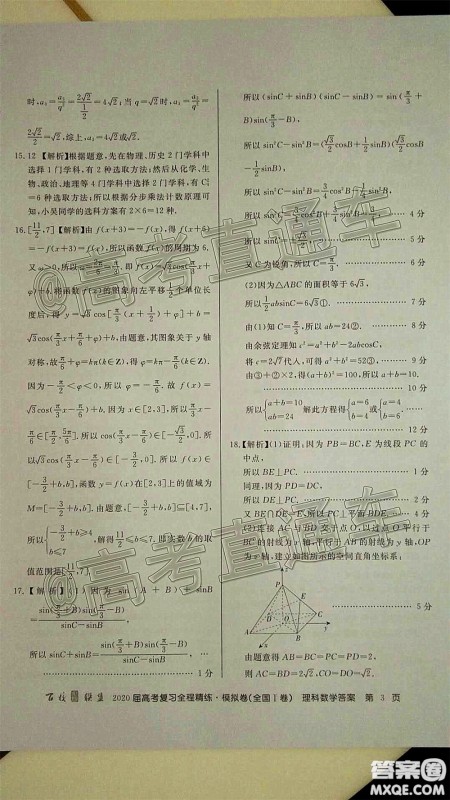 时,a₁=a₃/q²=2√2/(1/2)=4√2;当q=√2时,a₁=a₃/q²=
2√2/2=√2,综上,a₁=4√2或√2.
15.12 【解析】根据题意,先在物理、历史2门学科中
选择1门学科,有2种选取方法;然后从化学、生
物、政治、地理等4门学科中选择2门学科,有C₄²
=6种选取方法;所以根据分步乘法计数原理可
知,小吴同学的选科方案有2×6=12种.
16.[11/2,7] 【解析】由f(x+3)=-f(x),得f(x+6)
=-f(x+3)=f(x),所以函数f(x)的周期为6,
φ)+b,将函数f(x)的图象向左平移1/2个单位长
度后,得y=√3cos[π/3(x+1/2)+φ]+b=
√3cos(π/3x+π/6+φ)+b,由题意,其图象关于y轴
对称,故π/6+φ=kπ(k∈Z),即φ=kπ-π/6(k∈Z).
因为-π/2<φ<0,所以φ=-π/6.故f(x)=
√3cos(π/3x-π/6)+b,因为x∈[2,3],所以π/3x-
π/6∈[π/2,5π/6].所以√3cos(π/3x-π/6)∈[-3/2,0].所
以√3cos(π/3x-π/6)∈[-3/2,0].所以f(x)∈
[-3/2+b,b].因此函数f(x)在[2,3]上的值域为
M=[-3/2+b,b].由题意,[-3/2+b,b]⊆[4,7],
所以{-3/2+b≥4, b≤7.解得11/2≤b≤7.即实数b的取
值范围是[11/2,7].
17.【解析】(1)因为(sinA+sinB)/(sinC-sinB)=
sin(π/3+B)/(sinC-sinB)=sin(π/3+B)sin(π/3-B)/(sinC-sinB)
1分
所以(sinC+sinB)(sinC-sinB)=sin(π/3+
B)sin(π/3-B),
所以sin²C-sin²B=(√3/2cosB+1/2sinB)(√3/2cosB
-1/2sinB),
4分
又C为锐角,所以C=π/3. 6分
(2)因为△ABC的面积等于6√3,
所以1/2absinC=6√3①. 7分
由(1)知C=π/3,所以ab=24②. 8分
由余弦定理知c²=a²+b²-2abcosC,
将c=2√7代入,可得a²+b²=52③, 9分
由③+②×2,得(a+b)²=100,所以a+b=10.
10分
所以{a+b=10 ab=24 解此方程得{a=6 b=4或{a=4 b=6.
12分
18.【解析】(1)证明:因为PB=BC,E为线段PC的
中点,
所以BE⊥PC.
同理,因为PD=DC,
所以DE⊥PC.
又BE∩DE=E,所以PC⊥平面BDE.
(2)连接AC与BD交于点O,以过点O平行于
BC的射线为x轴,平行于AB的射线为y轴,OP
为z轴,建立如图所示的空间直角坐标系;
5分
z
P
E
A
B
D
O
C
x
y
由题意得AC=BC=PC=PD=AC=
AD=BD=CD=2,
百校联盟 2020届高考复习全程精练·模拟卷(全国Ⅰ卷) 理科数学答案 第 3 页
@高考直通车
@高考直通车
答案圈
MXQE.COM